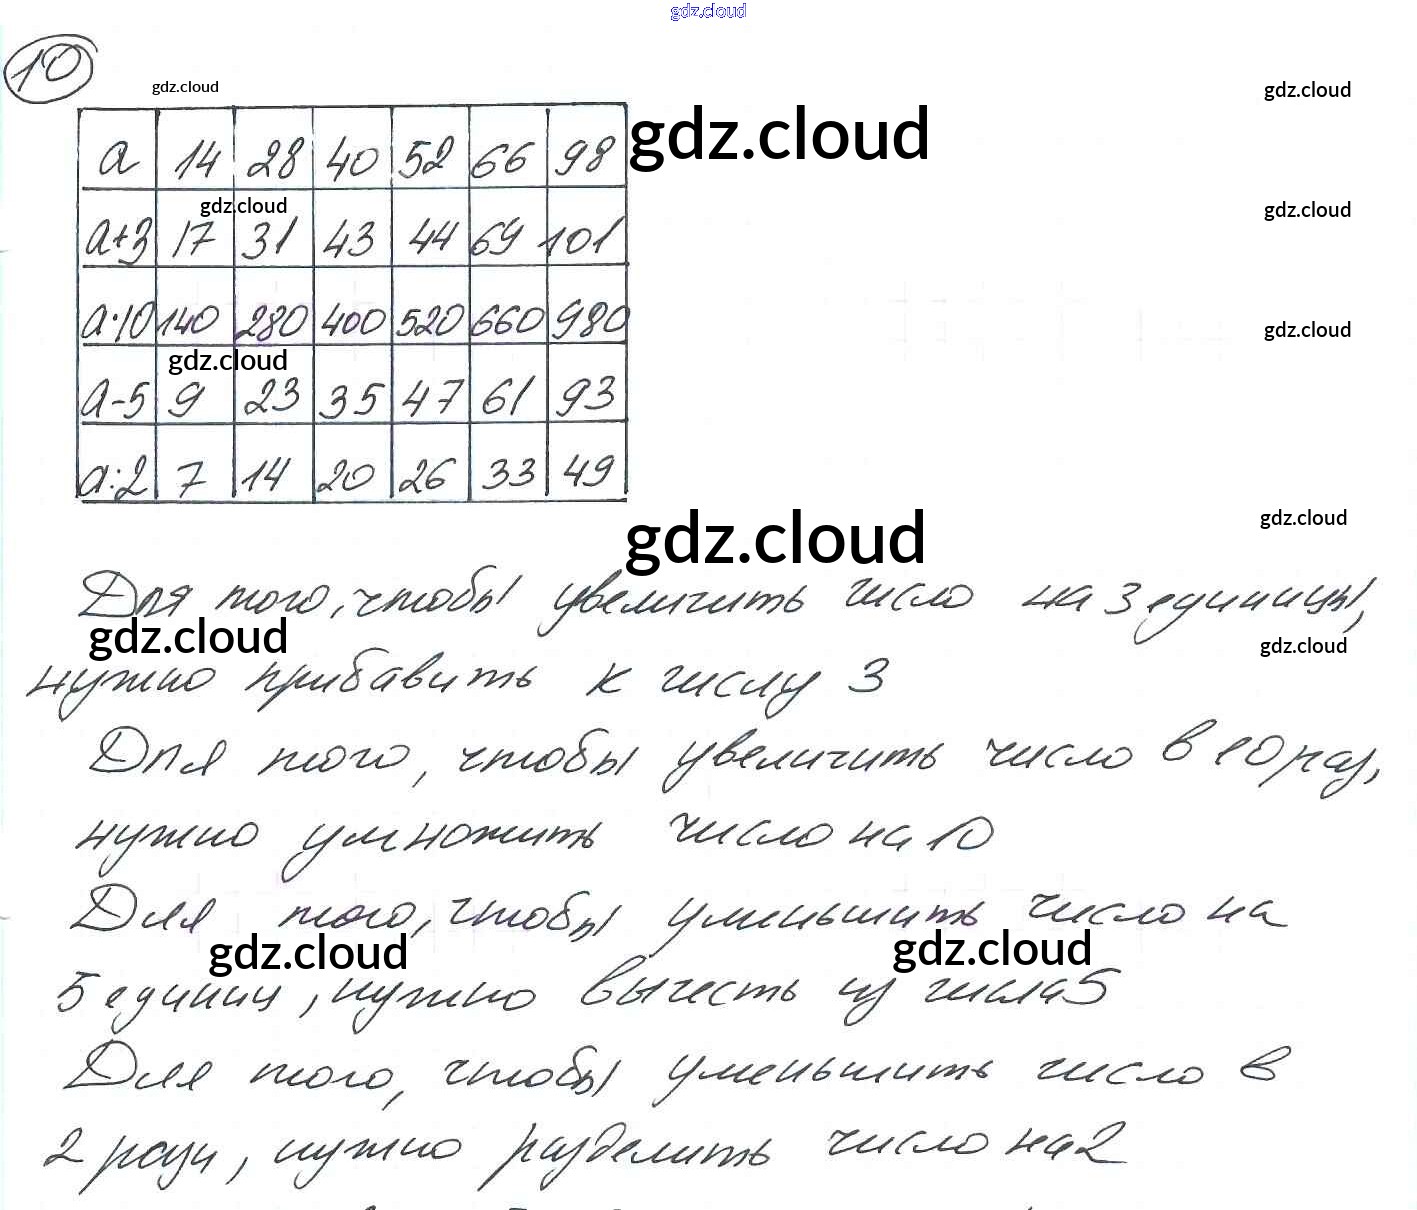 gdz.cloud
10
gdz.cloud
gdz.cloud
a 14 28 40 52 66 98
gdz.cloud
gdz.cloud
gdz.cloud
a+3 17 31 43 44 69 101
a·10 140 280 400 520 660 980
gdz.cloud
gdz.cloud
a-5 9 23 35 47 61 93
a:2 7 14 20 26 33 49
gdz.cloud
gdz.cloud
Для того, чтобы увеличить число на 3 единицы,
gdz.cloud
gdz.cloud
нужно прибавить к числу 3
Для того, чтобы увеличить число в 10 раз,
нужно умножить число на 10
Для того, чтобы уменьшить число на
gdz.cloud
gdz.cloud
5 единиц, нужно вычесть из числа 5
Для того, чтобы уменьшить число в
2 раза, нужно разделить число на 2